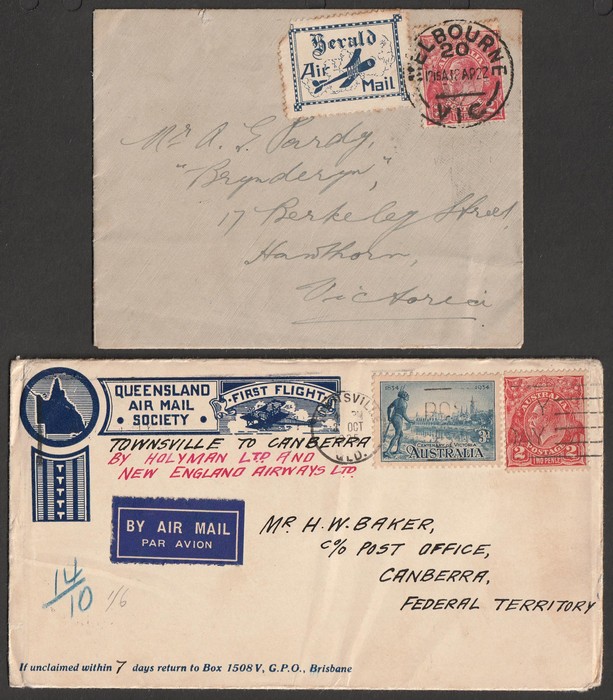 Herald
Air Mail
MELBOURNE
20
12 AP 22
VIC
AUSTRALIA
Mr A. G. Pardy,
"Brynderyn",
17 Berkeley Street,
Hawthorn,
Victoria
QUEENSLAND
AIR MAIL
SOCIETY
FIRST FLIGHT
TOWNSVILLE TO CANBERRA
BY HOLYMAN LTD AND
NEW ENGLAND AIRWAYS LTD.
OCT
QLD.
1834 1934
CENTENARY VICTORIA
3d
AUSTRALIA
AUSTRALIA
POSTAGE
2 TWO PENCE 2
BY AIR MAIL
PAR AVION
MR. H. W. BAKER,
C/o POST OFFICE,
CANBERRA,
FEDERAL TERRITORY
14/10
1/6
If unclaimed within 7 days return to Box 1508V, G.P.O., Brisbane